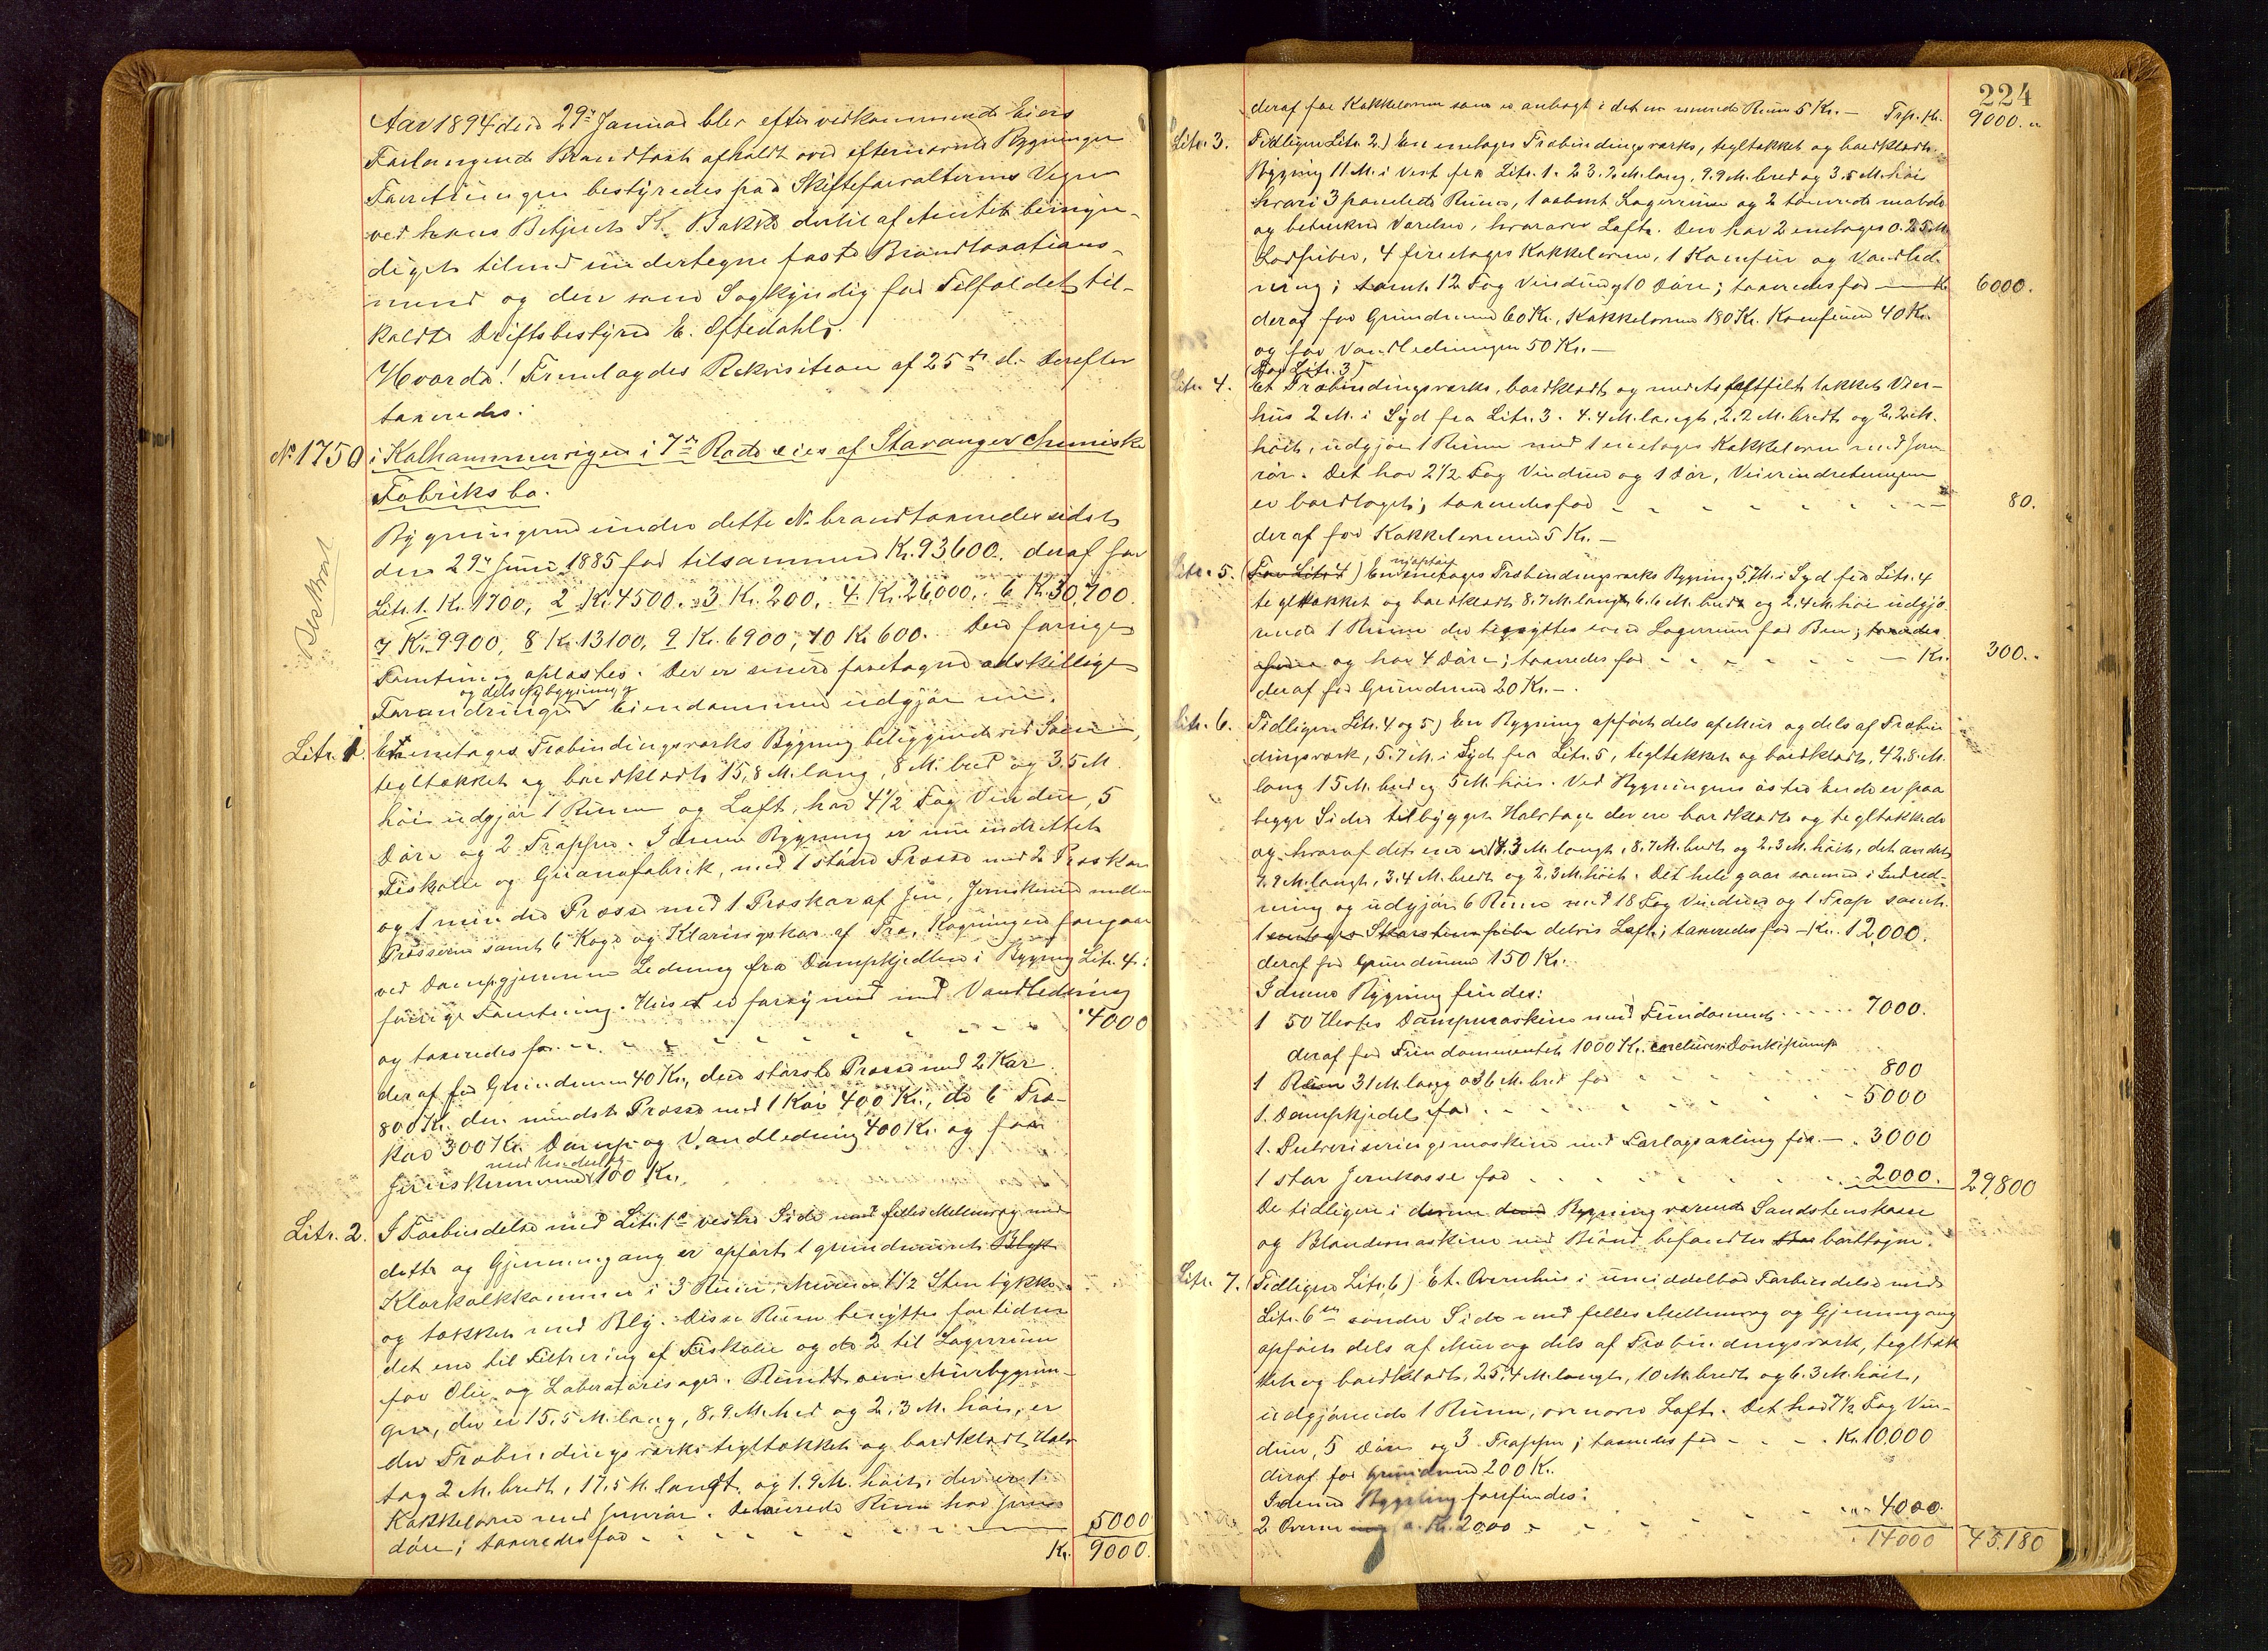 Aar 1894 den 29de Januar blev efter vedkommende Eiers
Forlangende Brandtaxt afholdt over efternævnte Bygninger
Forretningen bestyredes paa Skifteforvalterens Vegne
ved hans Betjent K. Bakke dertil af Amtet bemyn-
diget tilmed undertegnede faste Brandtaxations-
mænd og den som Sagkyndig for Tilfældet til-
kaldte Driftsbestyrer E. Oftedahl.
Hvorda! Fremlagdes Rekvisition af 25de d. Derefter
taxeredes:
No 1750 i Kalhammervigen i 7de Rode eies af Stavanger chemiske
Fabriks Co.
Beskrat
Bygningerne under dette No brandtaxeredes sidst
den 29de Juni 1885 for tilsammen Kr. 93600. deraf for
Litr. 1. Kr. 1700, 2 Kr. 4500. 3 Kr. 200, 4. Kr. 26,000, 6 Kr. 30,700.
7 Kr. 9900, 8 Kr. 13100, 9 Kr. 6900, 10 Kr 600. Den forrige
Forretning oplæstes. Der er senere foretagne adskillige
og dels Nybygninger
Forandringer Eiendommen udgjør nu.
Litr. 1. En enetages Træbindingsværks Bygning beliggende ved Søen,
tegltækket og bordklædt 15,8 M. lang, 8 M. bred og 3.5 M
høi udgjør 1 Rum og Loft, har 4 1/2 Fag Vinduer, 5
Døre og 2 Trapper. I denne Bygning er nu indrettet
Fiskolie og Guanofabrik, med 1 større Presse med 2 Preskar
og 1 mindre Presse med 1 Preskar af Jern, Jernskinner mellem
Presserne samt 6 Koge og Klaringskar af Træ, Kogningen foregaar
ved Damp gjennem Ledning fra Dampkjedlen i Bygning Litr. 4 i
førrige Forretning. Huset er forsynet med Vandledning
og taxeredes for - - - - - - - 4000
deraf for Grundmur 40 Kr., den største Presse med 2 Kar
800 Kr. den mindste Presse med 1 Kar 400 Kr., de 6 Træ-
kar 300 Kr. Damp og Vandledning 400 Kr. og for
med
Jernskinnerne 100 Kr.
Litr. 2. I Forbindelse med Litr. 1s vestre Side med fælles Mellemvæg med
dette og Gjennemgang er opført 1 grundmuret Blyt
Klorkalkkammer i 3 Rum, Murene 1 1/2 Sten tykke
og tækket med Bly. Disse Rum benyttes for tiden
det ene til Filtrering af Fiskolie og de 2 til Lagerrum
for Olie og Laboratoriesager. Rundt om Murbygnin-
gen, der er 15,5 M. lang, 8,9 M. bred og 2,3 M. høi, er
der Træbindingsværks tegltækket og bordklædt Halv
tag 2 M. bredt, 17,5 M. langt og 1.9 M. høit, der er 1
Kakkelovn med Jernrør. De murede Rum har Jern
døre; taxeredes for - - - - - - 5000
Kr. 9000.
224
deraf for Kakkelovnen som er anbragt i det ene murede Rum 5 Kr. — Trp. Kr. 9000. "
Litr. 3. Tidligere Litr. 2.) En enetages Træbindingsværks, tegltækket og bordklædt
Bygning 11 M. i Vest fra Litr. 1. 23.2 M. lang, 9.9 M. bred og 3.5 M. høi
hvori 3 panelede Rum, 1 aabent Lagerrum og 2 tømrede malede
og betrukne Værelser, hvorover Loft. Den har 2 enetages 0.25 M.
Lodpiber, 4 fireetages Kakkelovne, 1 Komfur og Vandled-
ning; samt 12 Fag Vinduer, 10 Døre; taxeredes for — Kr. 6000.
deraf for Grundmur 60 Kr., Kakkelovne 180 Kr. Komfuret 40 Kr.
og for Vandledningen 50 Kr. —
(Før Litr. 3)
Litr. 4. Et Træbindingsværks, bordklædt og med Asfaltfilt tækket Veier-
hus 2 M. i Syd fra Litr. 3. 4.4 M. langt, 2.2 M. bredt og 2.2 M.
høit, udgjør 1 Rum med 1 enetages Kakkelovn med Jern
rør. Det har 2 1/2 Fag Vinduer og 1 Dør, Veierindretningen
er borttaget; taxeredes for - - - - - - 80.
deraf for Kakkelovnen 5 Kr. —
Litr. 5. (Før Litr 4) En nyopført enetages Træbindingsværks Bygning 5.7 M. i Syd fra Litr. 4
tegltækket og bordklædt 8.7 M. lang, 6.6 M. bred og 2,4 M. høi udgjø-
rende 1 Rum der benyttes som Lagerrum for Ben; taxeredes
og har 4 Døre; taxeredes for - - - - - Kr. 300. "
deraf for Grundmur 20 Kr. —.
Litr. 6. Tidligere Litr. 4 og 5.) En Bygning opført dels af Mur og dels af Træbin
dingsværk, 5.7 M. i Syd fra Litr. 5, tegltækket og bordklædt, 42.8 M.
lang 15 M. bred og 5 M. høi. Ved Bygningens østre Ende er paa
begge Sider tilbygget Halvtage der ere bordklædte og tegltækkede
og hvoraf det ene er 17.3 M. langt, 8,7 M. bredt og 2,3 M. høit, det andet
7.9 M. langt, 3.4 M. bredt og 2,3 M. høit. Det hele gaar sammen i Indred-
ning og udgjør 6 Rum med 18 Fag Vinduer og 1 Trap samt
1 enetages Skorstenspibe delvis Loft; taxeredes for — Kr. 12,000.
deraf for Grundmur 150 Kr.
I denne Bygning findes:
1 50 Hestes Dampmaskine med Fundament - - - 7000.
deraf for Fundamentet 1000 Kr. Donkipumpe
1 31 M. lang og 6 M. bred for - - - 800
1. Dampkjedel for - - - - - - 5000
1. Pulveriseringsmaskine med for — . 3000
1 stor Jernkasse for - - - - - 2000. 29,800
De tidligere i denne Bygning værende Sandstenskasse
og Blandemaskine ved Brønd befandtes borttagne.
Litr. 7. (Tidligere Litr. 6) Et Ovnhus i umiddelbar Forbindelse med
Litr. 6's søndre Side med fælles Mellemvæg og Gjennemgang
opført dels af Mur og dels af Træbindingsværk, tegltæk
ket og bordklædt, 25,4 M. langt, 10 M. bredt og 6.3 M. høit,
udgjørende 1 Rum, ovenover Loft. Det har 7 1/2 Fag Vin-
duer, 5 Døre og 3 Trapper; taxeredes for - - - Kr. 10,000
deraf for Grundmur 200 Kr.
I denne Bygning forefindes:
2 Ovne a. Kr. 2000 - - - - - 4000.
14000 45,180